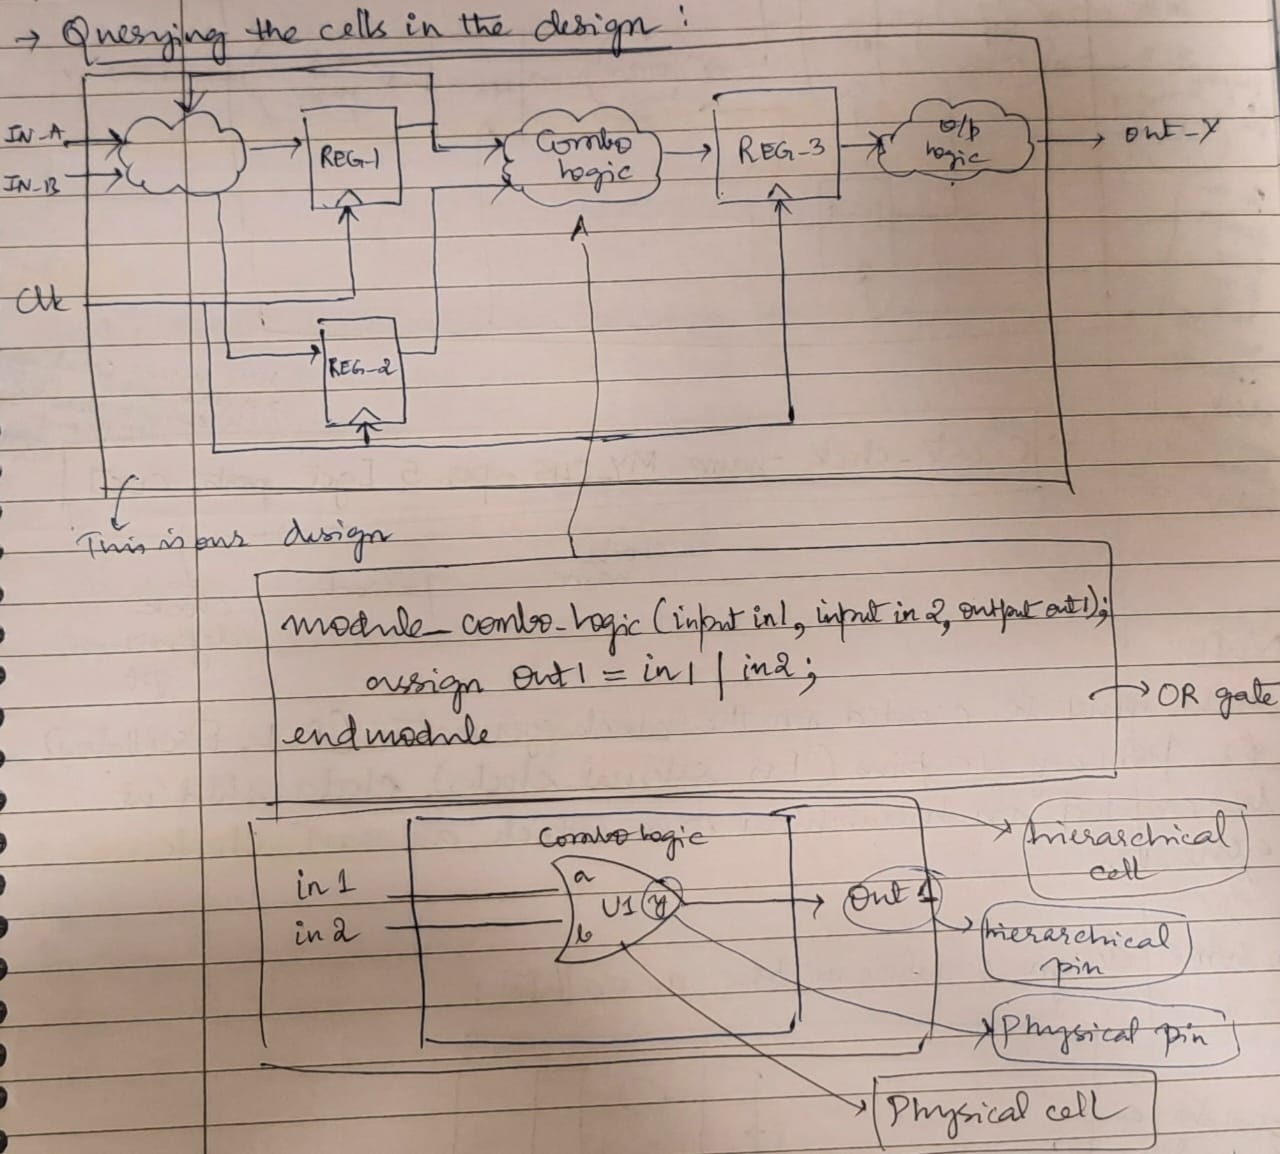 → Querying the cells in the design :
IN-A
IN-B
REG-1
Combo
Logic
REG-3
o/p
Logic
out-Y
Clk
REG-2
This is our design
module_combo-logic (input in1, input in2, output out1);
assign out1 = in1 | in2;
endmodule
OR gate
Combo logic
hierarchical
cell
in 1
a
U1
y
Out 1
in 2
b
hierarchical
pin
Physical pin
Physical cell